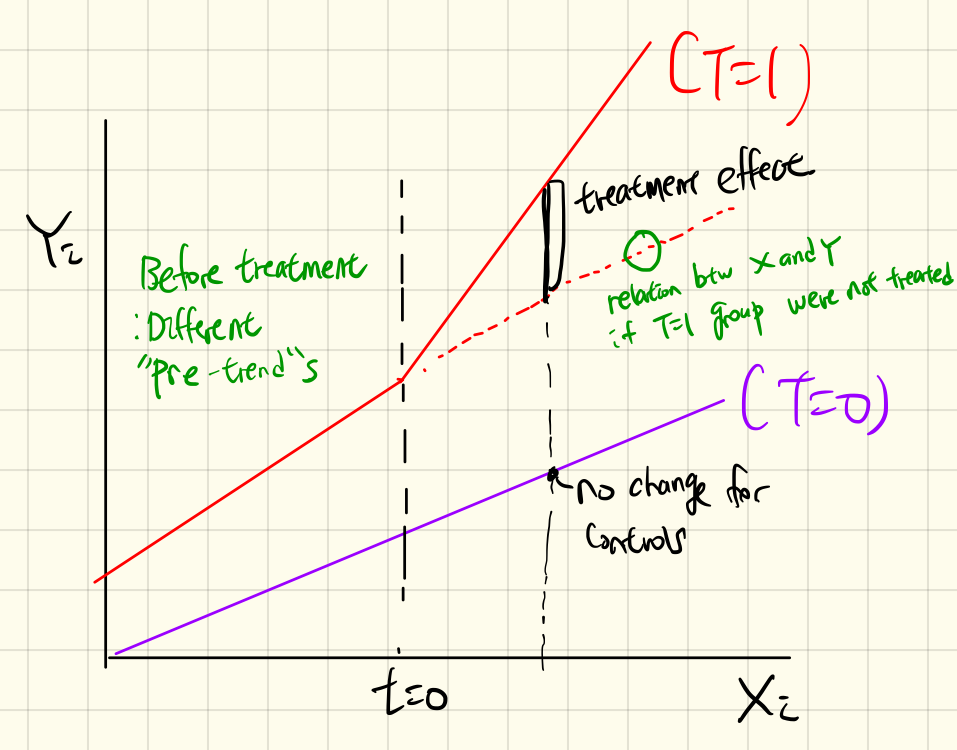 (T=1)
treatment effect
Yi
Before treatment
: Different
"Pre-trend"s
relation btw X and Y
if T=1 group were not treated
(T=0)
no change for
controls
t=0
Xi